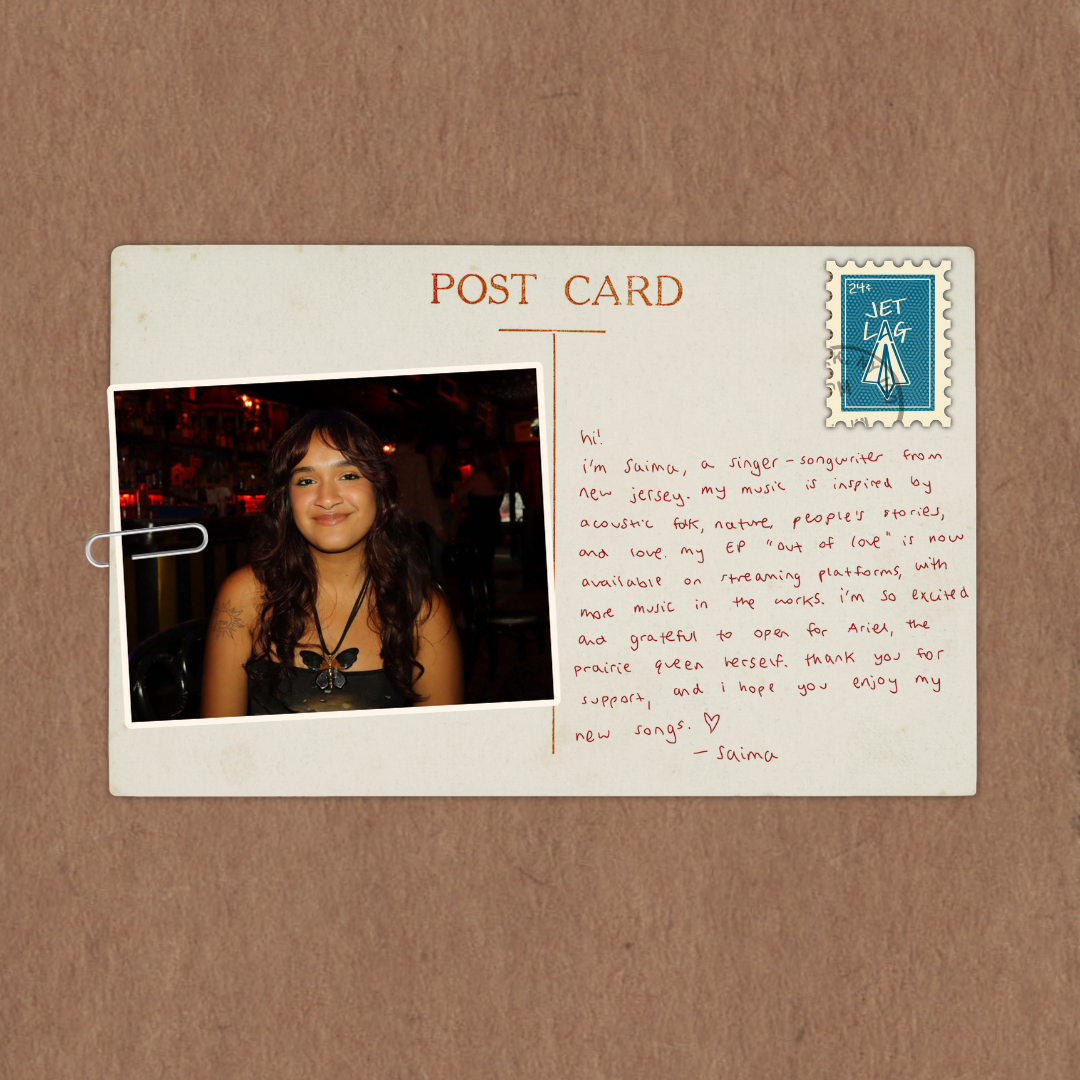 POST CARD
24¢
JET
LAG
hi!
i'm saima, a singer-songwriter from
new jersey. my music is inspired by
acoustic folk, nature, people's stories,
and love. my EP "out of love" is now
available on streaming platforms, with
more music in the works. i'm so excited
and grateful to open for Ariel, the
prairie queen herself. thank you for
support, and i hope you enjoy my
new songs. ♡
- saima